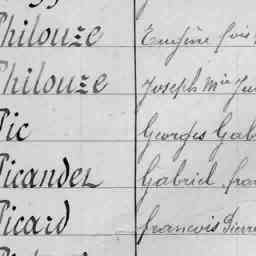 Philouze Eugène fois
Philouze Joseph Mie
Pic Georges Gab
Picandez Gabriel fra
Picard francois Pierre